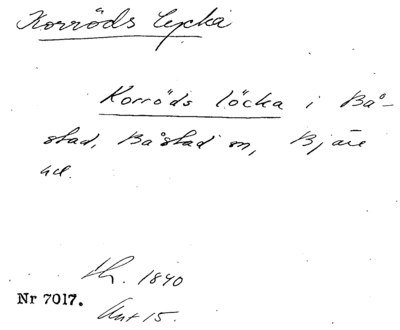 Korröds lycka
Korröds löcka i Bå-
stad, Båstad sn, Bjäre
hd.
Lh. 1840
Nr 7017.
Ant 15.